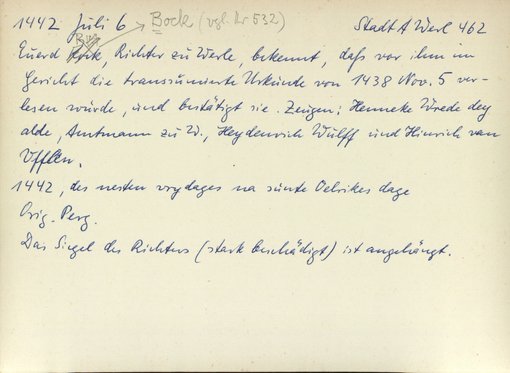 1442 Juli 6 Bock (vgl. Nr 532) StadtA Werl 462
Euerd Rock, Richter zu Werle, bekennt, dass vor ihm im
Gericht die transsumierte Urkunde von 1438 Nov. 5 ver-
lesen wurde, und bestätigt sie. Zeugen: Henneke Wrede dey
alde, Amtmann zu W., Heydenrich Wulff und Hinrich van
Ufflen.
1442, des nesten vrydages na sunte Oelrikes dage
Orig. Perg.
Das Siegel des Richters (stark beschädigt) ist angehängt.